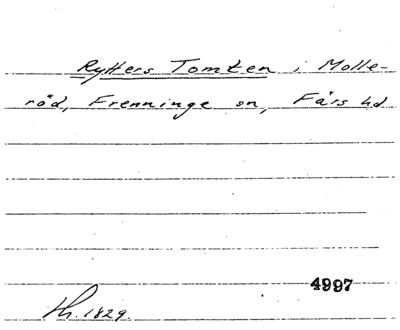 Rytters Tomten i Molle-
röd, Frenninge sn, Färs hd
4997
Th. 1829.